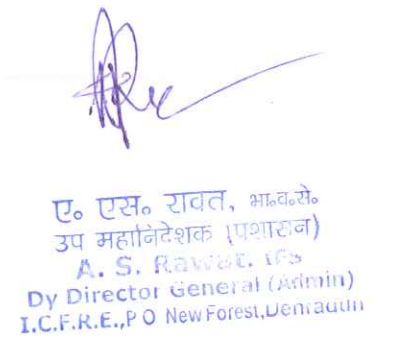 ए॰ एस॰ रावत, भा॰व॰से॰
उप महानिदेशक (प्रशासन)
A. S. Rawat, IFS
Dy Director General (Admin)
I.C.F.R.E.,P O New Forest,Dehradun